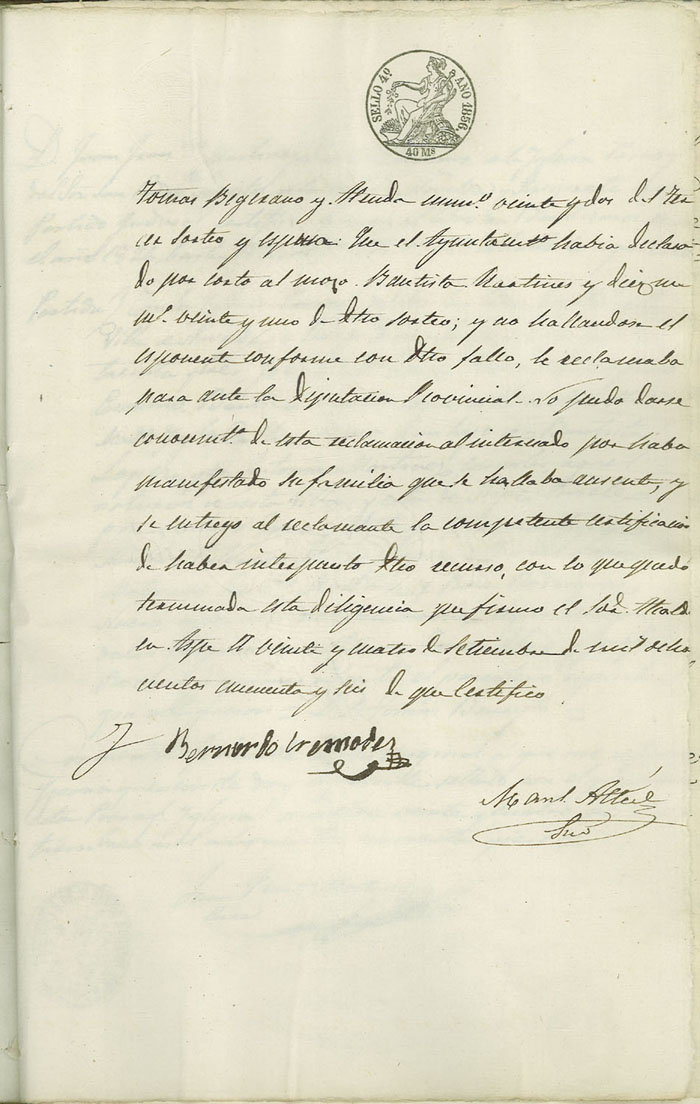 SELLO 4º AÑO 1856.
40 Ms
Tomas Begerano y Alzuda num.º veinte y dos del ter
cer sorteo y espuso: Que el Ayuntamto habia declara
do por corto al mozo Bautista Martines y Diez nu
mº veinte y uno de dho sorteo; y no hallandose el
esponente conforme con dho fallo, le reclamaba
para ante la Diputacion Provincial. No pudo darse
conocimtº de esta reclamacion al interesado por haber
manifestado su familia que se hallaba ausente, y
se entrego al reclamante la competente certificacion
de haber interpuesto dho recurso, con lo que quedó
terminada esta diligencia que firmo el Sor. Alcalde
en Aspe á veinte y cuatro de Setiembre de mil ocho
cientos cincuenta y seis de que Certifico
Bernardo Cremades
Manl.
Srio